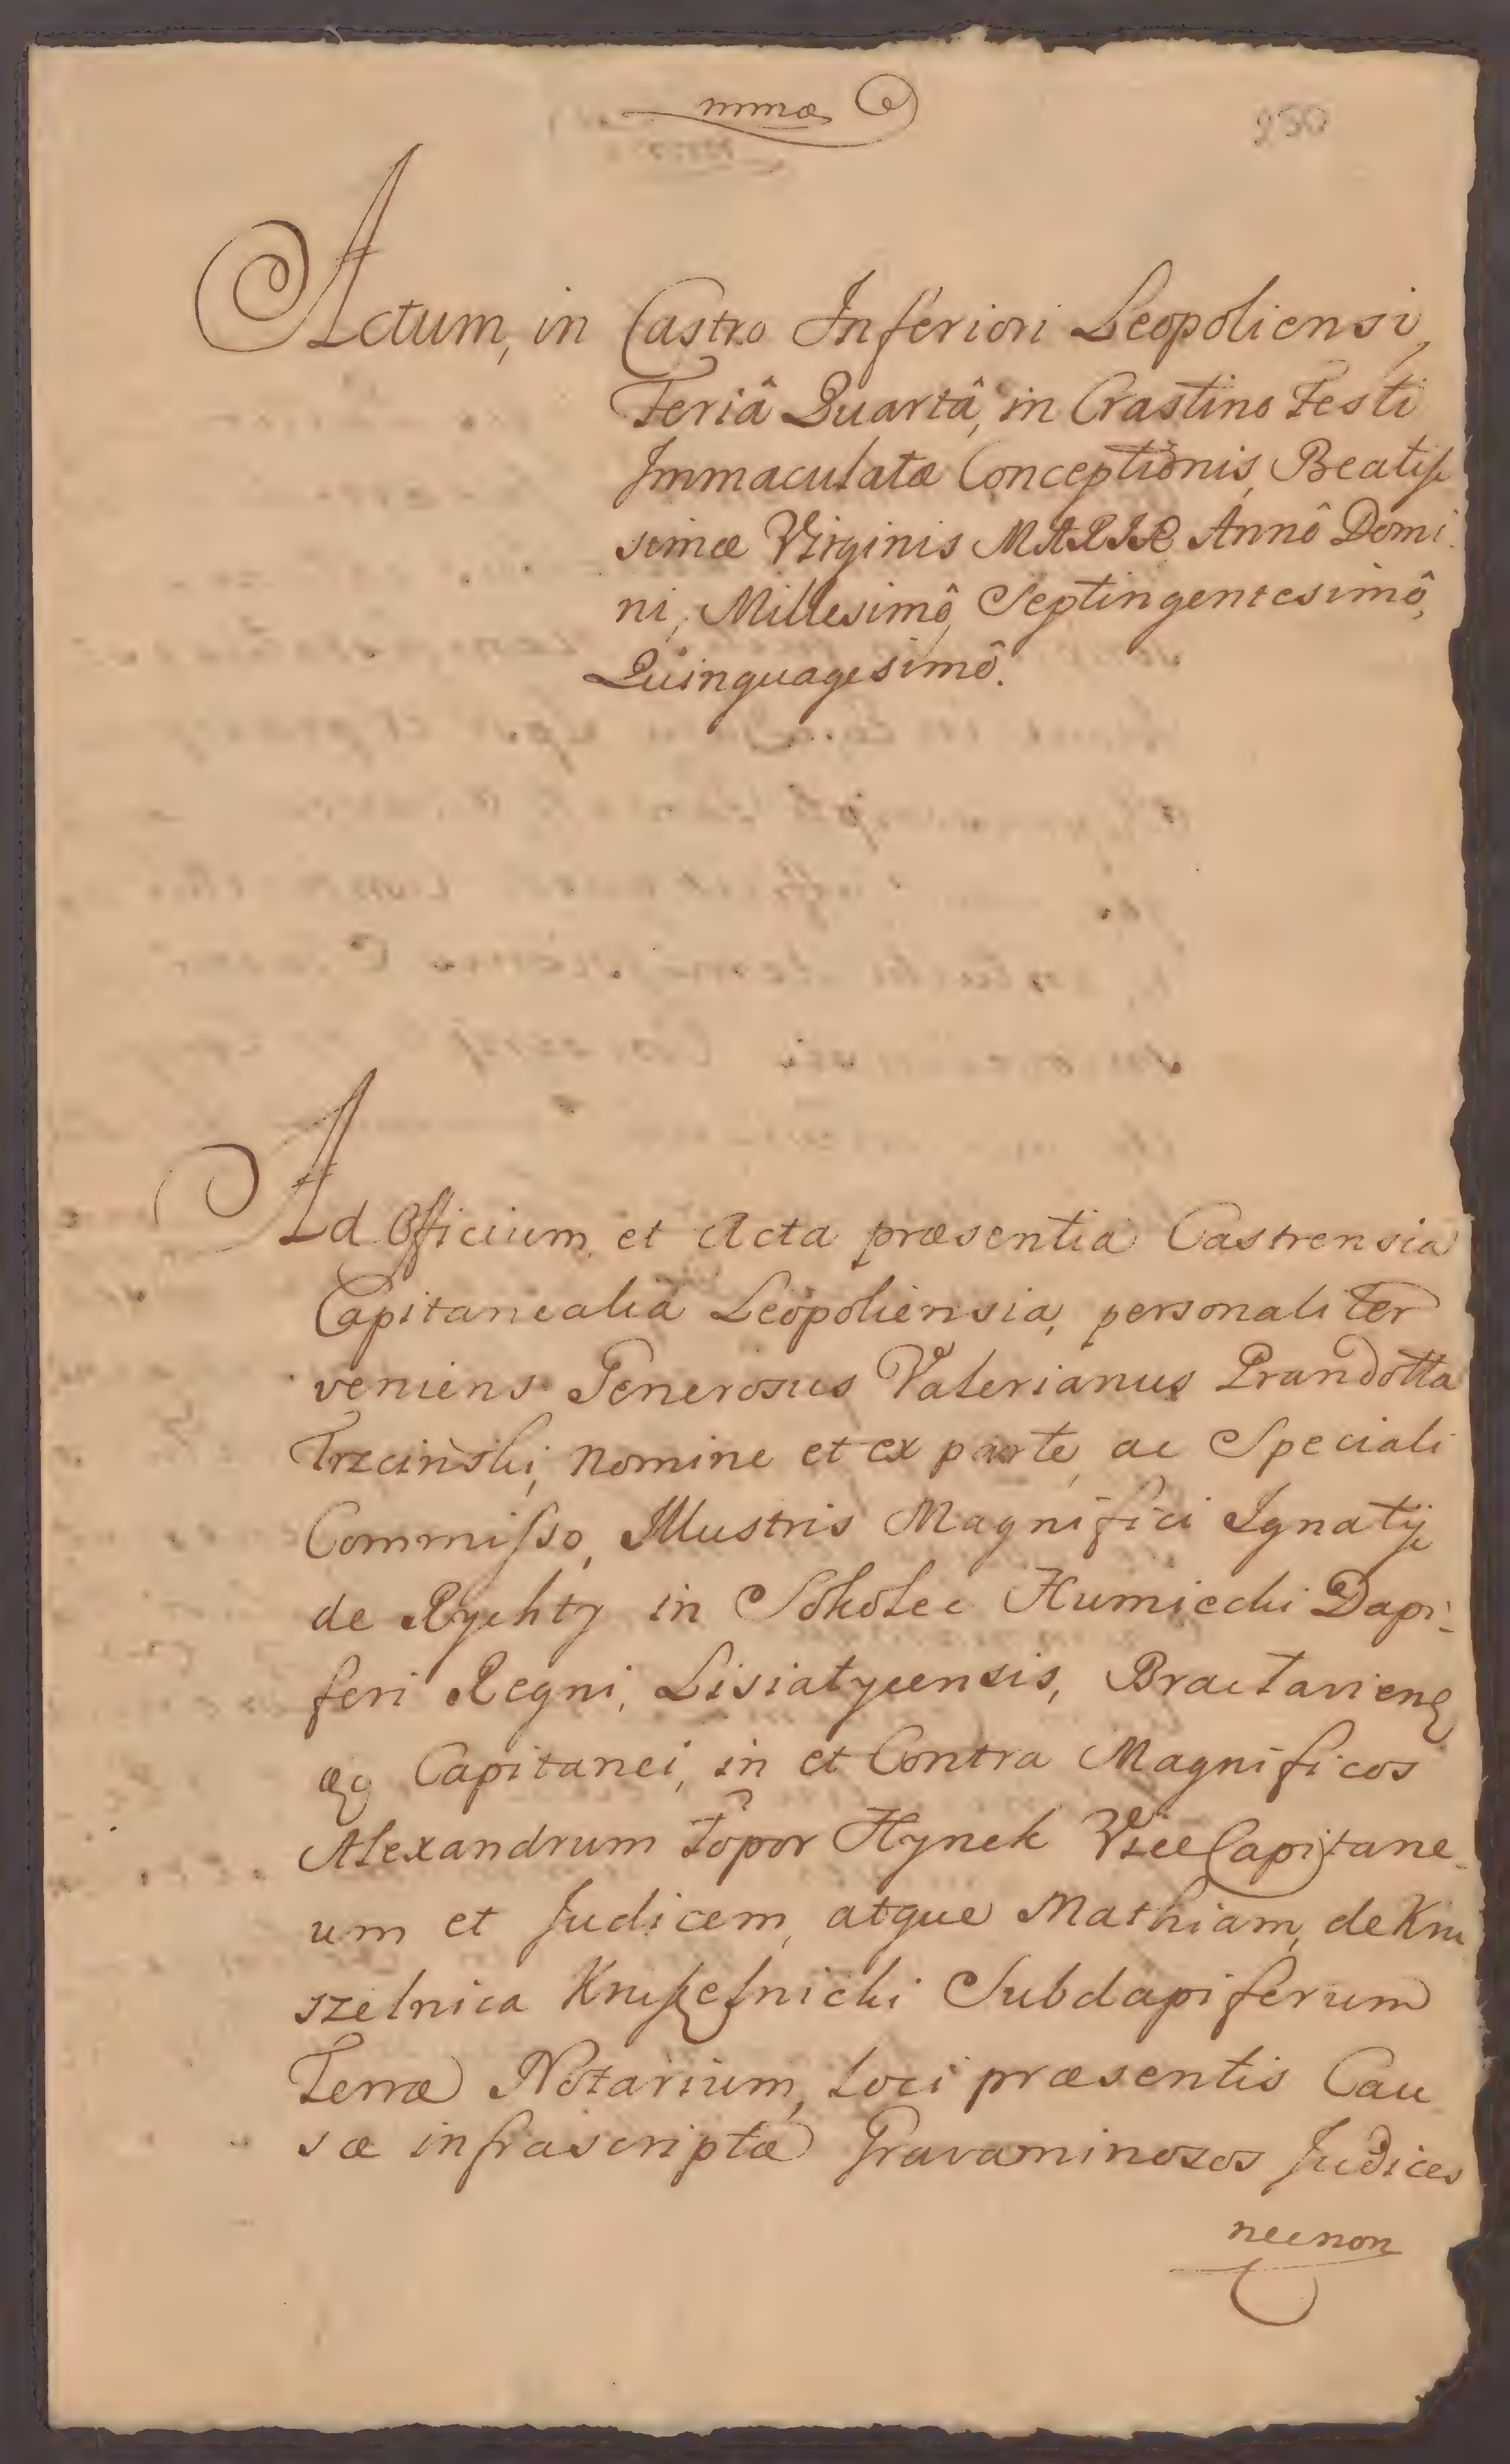 mmæ
250
Actum, in Castro Inferiori Leopoliensi,
Feriâ Quartâ, in Crastino Festi
Immaculatæ Conceptionis, Beatiſ
simæ Virginis MARIÆ Annô Domi
ni, Millesimô, Septingentesimô,
Quinquagesimô.
Ad Officium, et Acta præsentia Castrensia
Capitanealia Leopoliensia, personaliter
veniens Generosus Valerianus Prandotta
Trzcinski, nomine et ex parte, ac Speciali
Commiſso, Illustris Magnifici Ignatij
de Rychty in Sokolec Humiecki Dapi-
feri Regni, Lisiatycensis, Bractavienq
æq Capitanei, in et Contra Magnificos
Alexandrum Topor Hynek Vice Capitane-
um et Judicem, atque Mathiam, de Kru
szelnica Kruſzelnicki Subdapiferum
Terræ Notarium, Loci præsentis Cau
sæ infrascriptæ Gravaminosos Judices
necnon